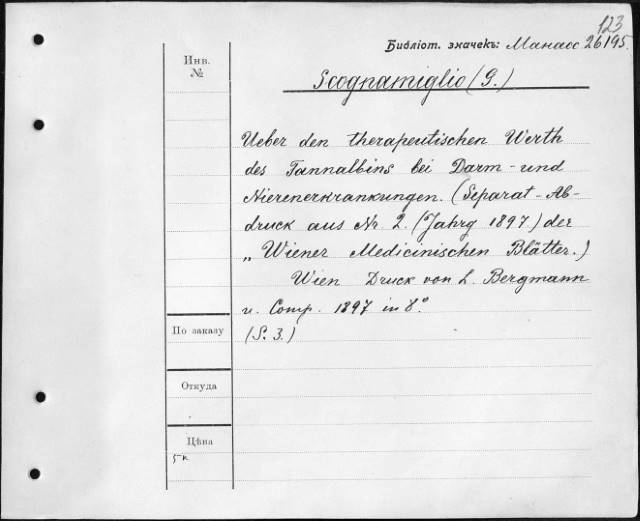 123
Библіот. значекъ: Манасс 26195.
Инв.
№
Scognamiglio (G.)
Ueber den therapeutischen Werth
des Tannalbins bei Darm- und
Nierenerkrankungen. (Separat-Ab-
druck aus Nr. 2. (Jahrg 1897.) der
„Wiener Medicinischen Blätter.)
Wien Druck von L. Bergmann
u. Comp. 1897 in 8.°
По заказу
(S. 3.)
Откуда
Цѣна
5к